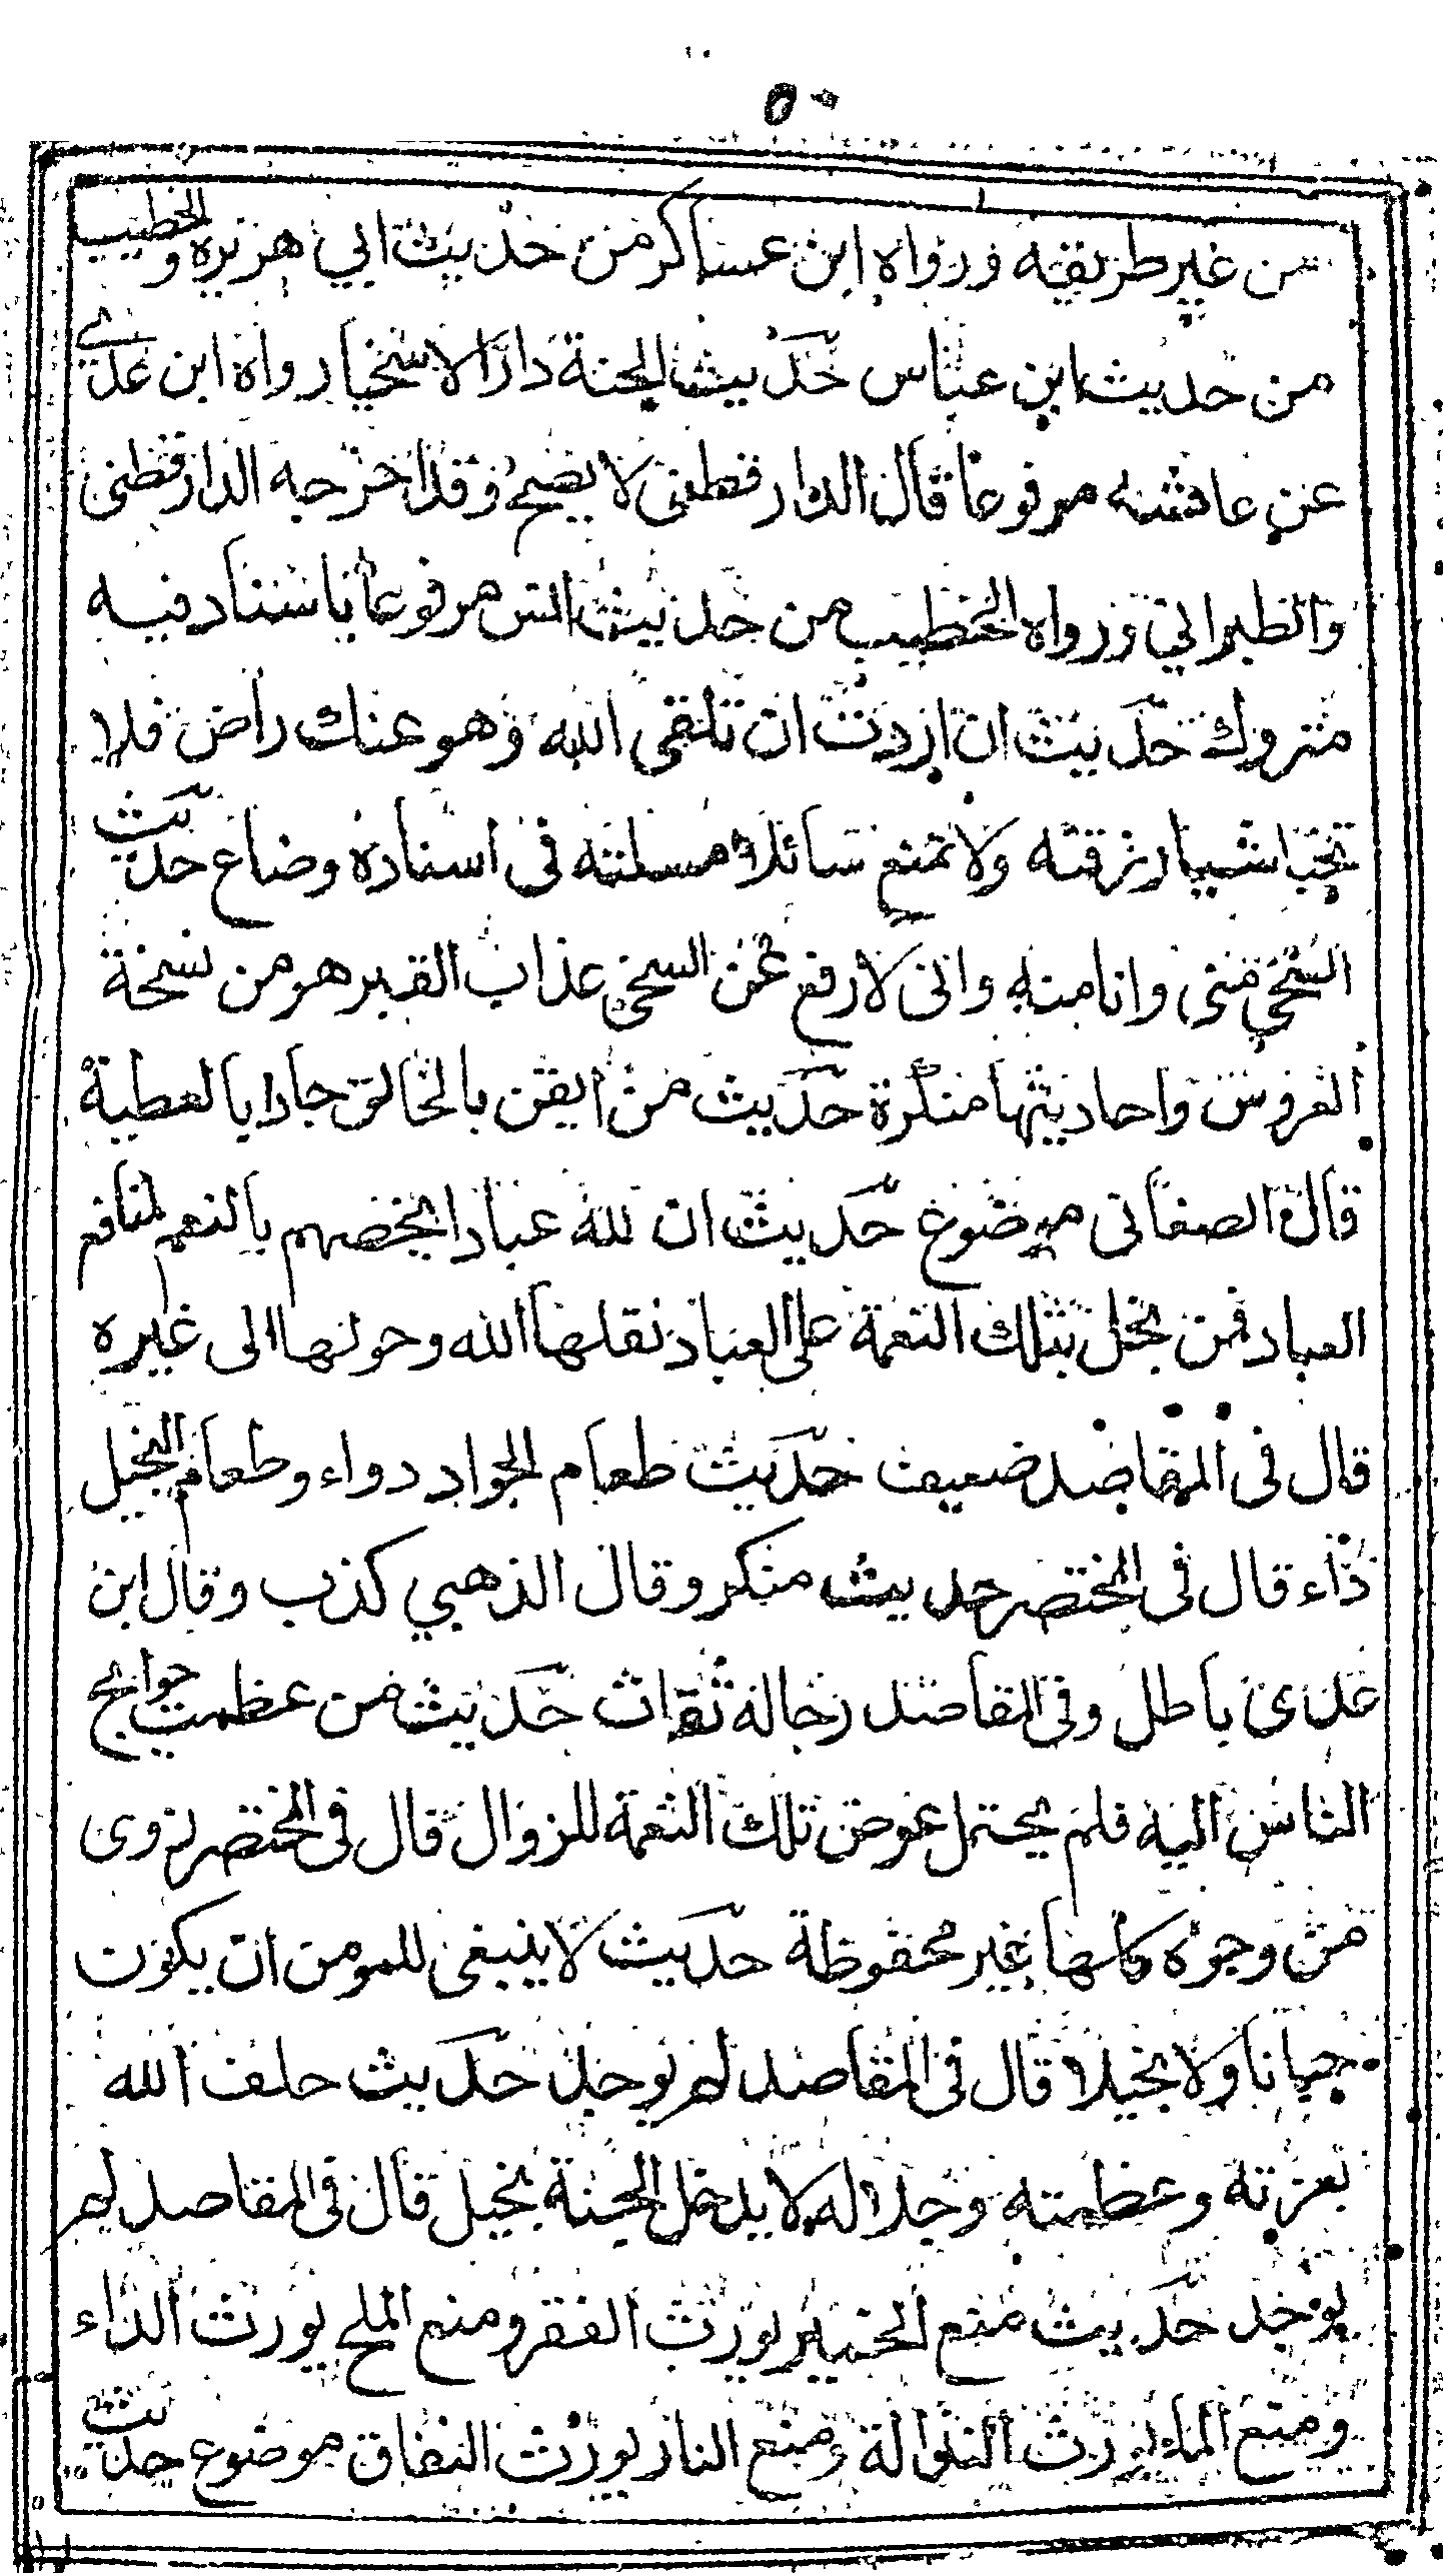 ٥٠
من غير طريقه ورواه ابن عساكر من حديث ابي هريره والخطيب
من حديث ابن عباس حديث الجنة دار الاسخيا رواه ابن عدى
عن عائشه مرفوعا قال الدار قطنى لا يصح وقد اخرجه الدارقطنى
والطبراني ورواه الخطيب من حديث انس مرفوعا باسناد فيه
متروك حديث ان اردت ان تلقى الله وهو عنك راض فلا
تخبا شيا رزقته ولا تمنع سائلا مسلته فى اسناده وضاع حديث
السخي منى وانا منه وانى لارفع عن السخي عذاب القبر هو من نسخة
العروس واحاديثها منكرة حديث من ايقن بالخالق جاد بالعطية
قال الصغانى موضوع حديث ان لله عبادا يخصهم بالنعم لمنافع
العباد فمن بخل بتلك النعمة على العباد نقلها الله وحولها الى غيره
قال فى المقاصد ضعيف حديث طعام الجواد دواء وطعام البخيل
داء قال فى المختصر حديث منكر وقال الذهبي كذب وقال ابن
عدى باطل وفى المقاصد رجاله ثقات حديث من عظمت حوايج
الناس اليه فلم يحتمل عرض تلك النعمة للزوال قال فى المختصر يروى
من وجوه كلها غير محفوظة حديث لا ينبغى للمومن ان يكون
جبانا ولا بخيلا قال فى المقاصد لم يوجد حديث حلف الله
بعزته وعظمته وجلاله لا يدخل الجنة بخيل قال فى المقاصد لم
يوجد حديث منع الخمير يورث الفقر ومنع الملح يورث الداء
ومنع الماء يورث النذالة ومنع النار يورث النفاق موضوع حديث